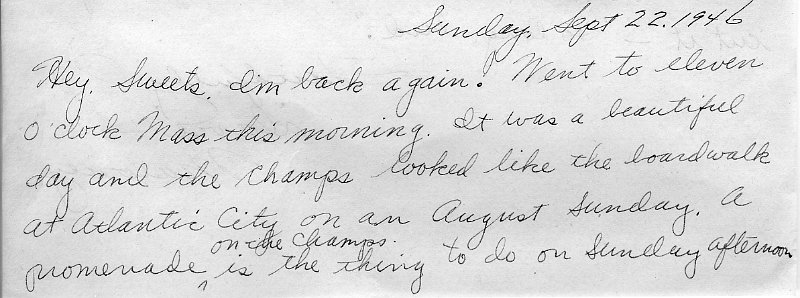 Sunday, Sept 22, 1946
Hey, Sweets, I'm back again. Went to eleven
o'clock Mass this morning. It was a beautiful
day and the Champs looked like the boardwalk
at Atlantic City on an August Sunday. A
on the Champs.
promenade ^ is the thing to do on Sunday afternoon